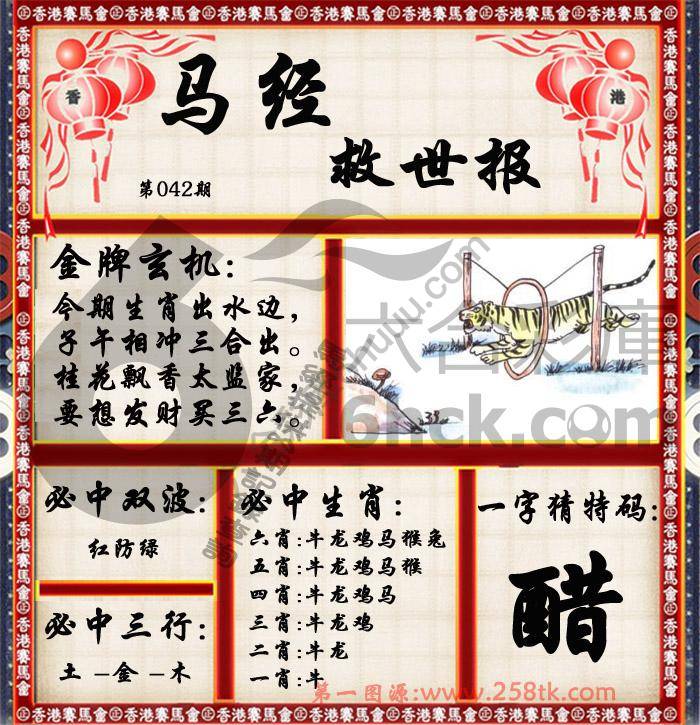 香港賽馬會
香
港
马经
救世报
第042期
金牌玄机:
今期生肖出水边,
子午相冲三合出。
桂花飘香太监家,
要想发财买三六。
六合天庫
6hck.com
必中双波:
红防绿
必中三行:
土-金-木
必中生肖:
六肖:牛龙鸡马猴兔
五肖:牛龙鸡马猴
四肖:牛龙鸡马
三肖:牛龙鸡
二肖:牛龙
一肖:牛
一字猜特码:
醋
第一图源:www.258tk.com